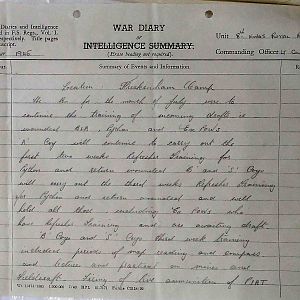 Diaries and Intelligence
in F.S. Regs., Vol. I.
respectively. Title pages
WAR DIARY
or
INTELLIGENCE SUMMARY.
(Erase heading not required).
Unit 8th Kings Royal
Commanding Officer Lt
Summary of Events and Information.
Location : Camp
The for the month of July were to
continue the training of incoming drafts is
wounded BLA and Ex PoWs
A Coy will continue to carry out the
first two weeks Refresher Training for
and return wounded B and 'S' Coys
will carry out the third weeks Refresher Training
for and return wounded and will
hold all those including Ex PoWs who
have Refresher Training and are awaiting draft.
B Coys and S Coys third week training
included periods of map reading and compass
and lectures and practical on mines and
Fieldcraft. Firing of live ammunition of PIAT